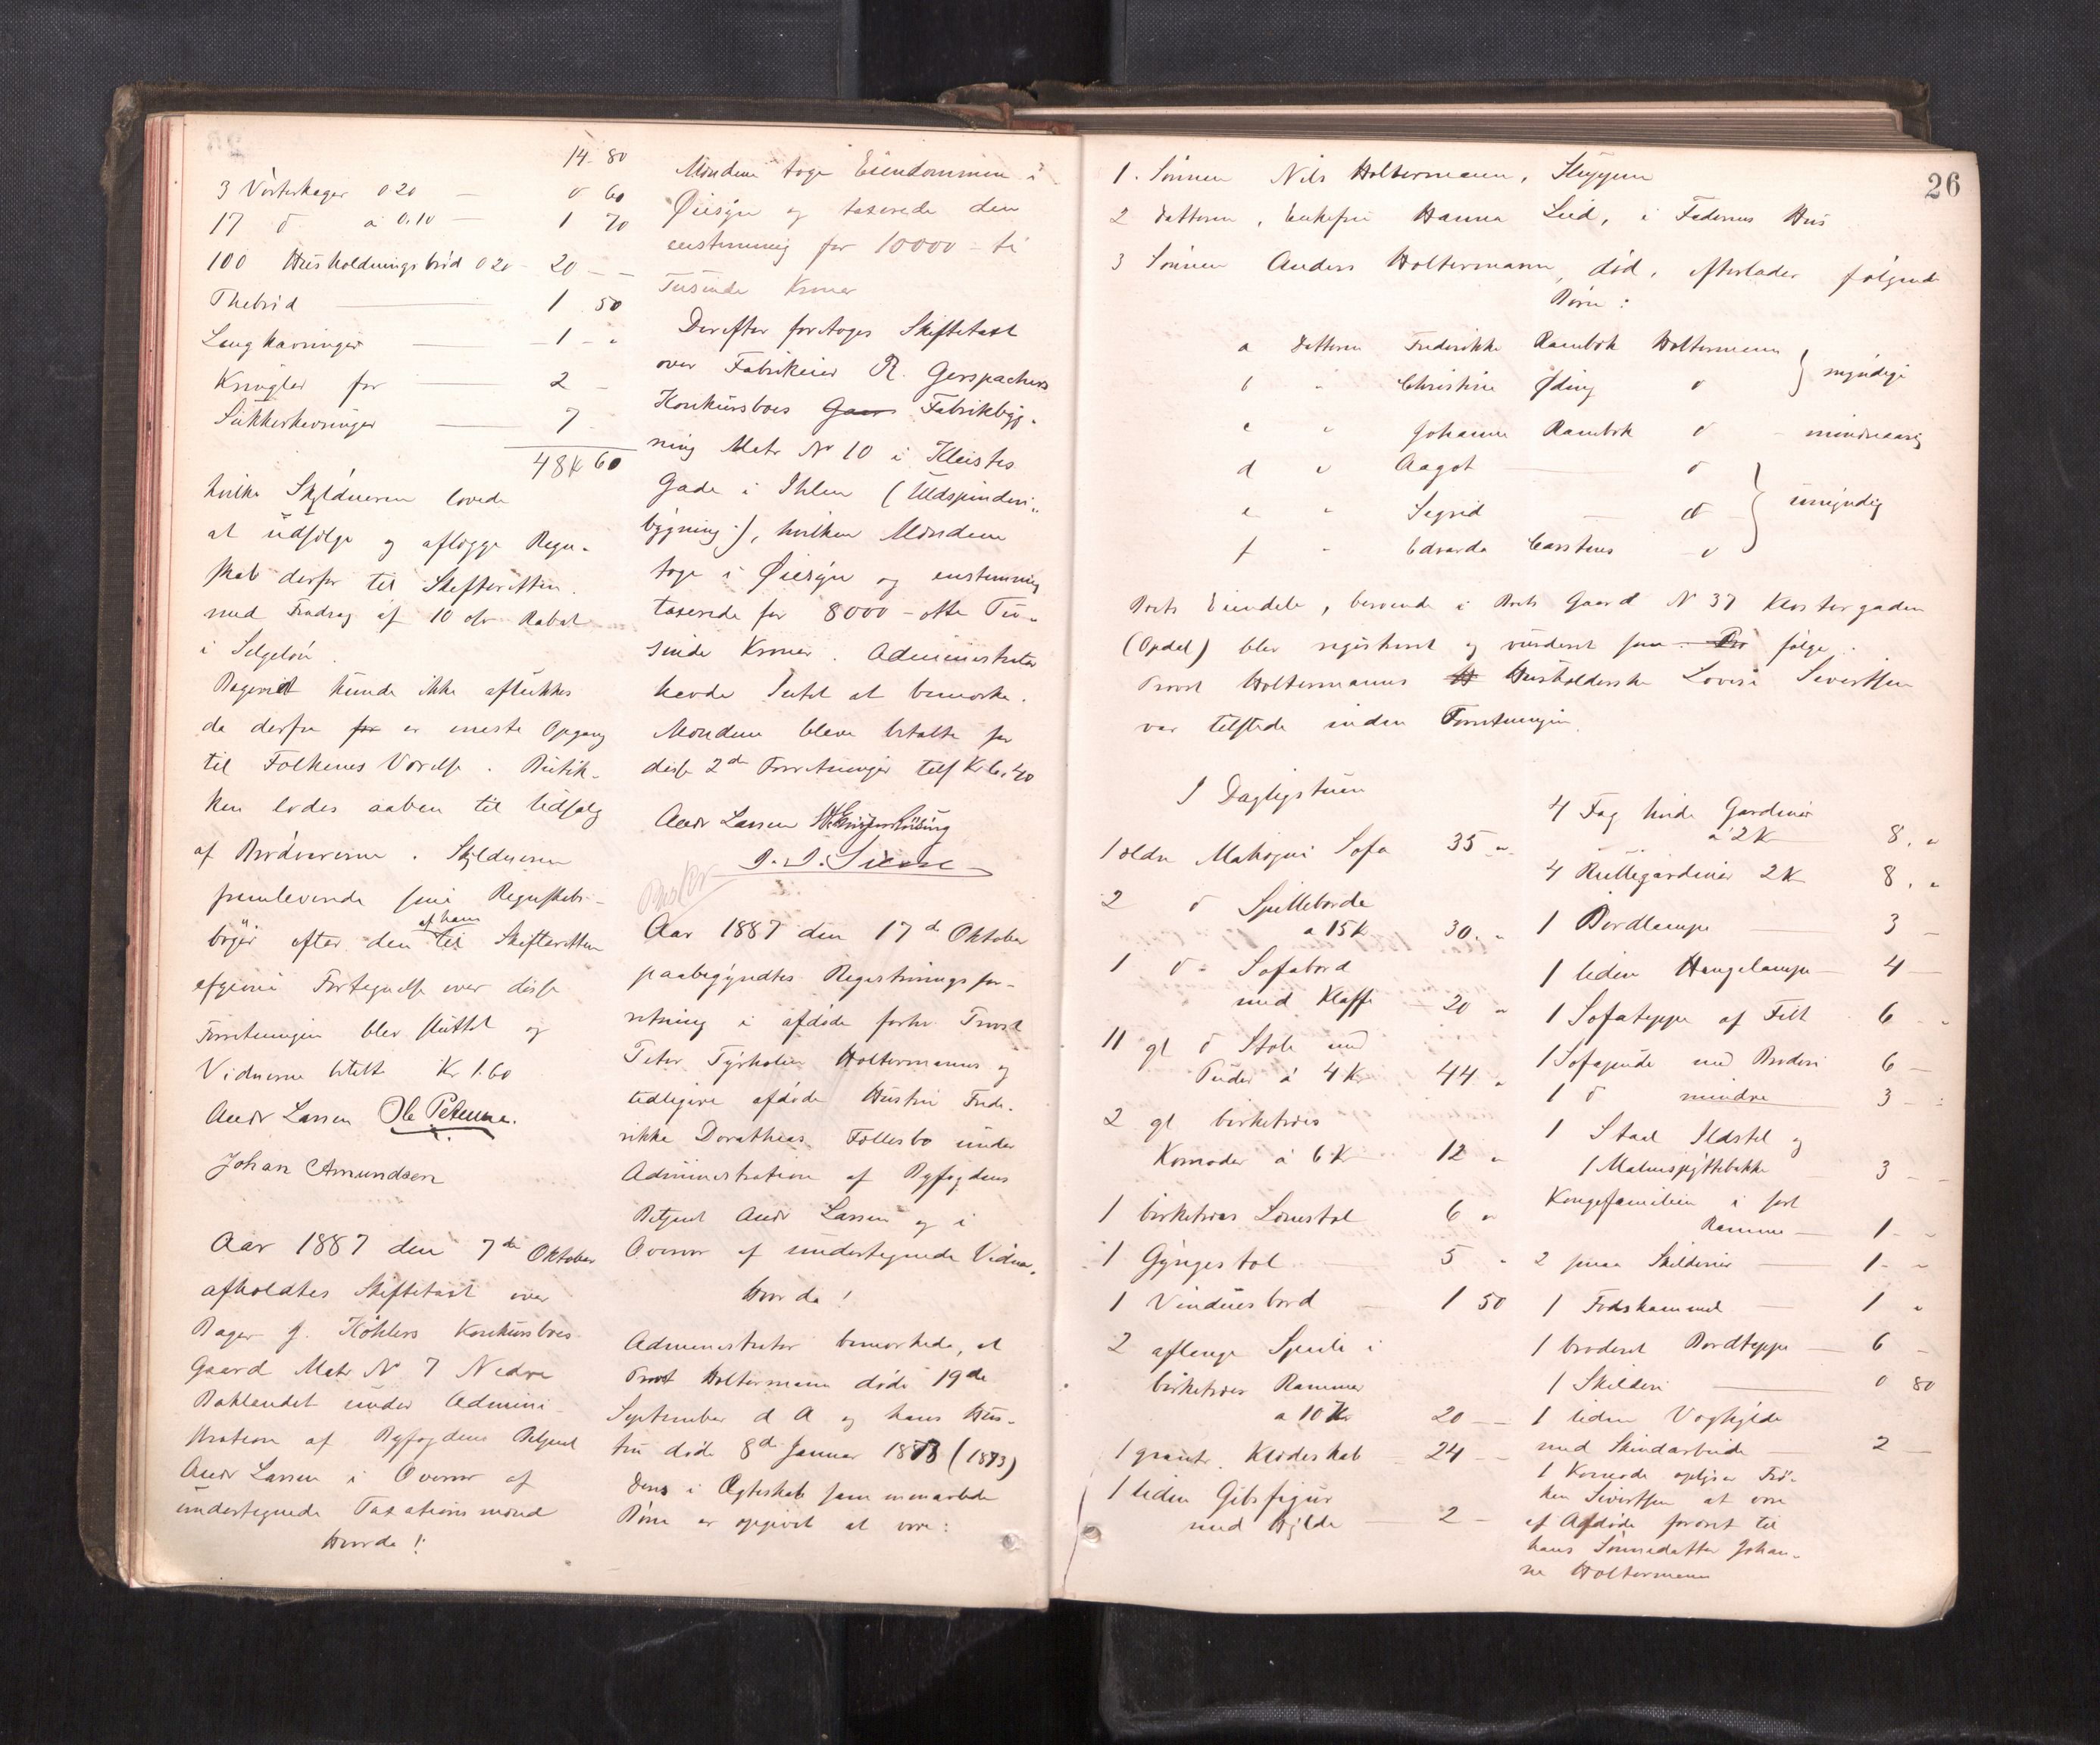 14 80
3 Vørterkager 0 20 — 0 60
17 d a 0.10 — 1 70
100 Husholdningsbrød 0 20 - 20 - -
Thebrød — 1 50
Langkavringer — 1 - "
Kringler for — 2 -
Sukkerkavringer — 7
48 K 60
hvilke Skyldneren lovede
at udsælge og aflægge Regn-
skab derfor til Skifteretten
med Fradrag af 10 o/o Rabat
i Salgsløn.
Bageriet kunde ikke aflukkes
da derfra for er eneste Opgang
til Folkenes Værelse. Butik-
ken lodes aaben til Udsalg
af Brødvarerne. Skyldneren
fremleverede sine Regnskabs-
bøger efter den af ham til Skifteretten
afgivne Fortegnelse over disse
Forretningen blev sluttet og
Vidnerne betalt Kr 1.60
Andr Larsen Ole Petersen.
Johan Amundsen
Aar 1887 den 7de Oktober
afholdtes Skiftetaxt over
Bager J. Køhlers Konkursboes
Gaard Matr No 7 Nedre
Baklandet under Admini-
stration af Byfogdens Betjent
Andr Larsen i Overvær af
undertegnede Taxationsmænd
Hvorda!
Mændene toge Eiendommen i
Øiesyn og taxerede den
enstemmig for 10000 - ti
Tusinde Kroner
Derefter foretoges Skiftetaxt
over Fabrikeier R. Gerspachers
Konkursboes Gaar Fabrikbyg-
ning Matr No 10 i Kleists
Gade i Ihlen (Uldspinderi-
bygning), hvilken Mændene
toge i Øiesyn og enstemmig
taxerede for 8000 - otte Tu-
sinde Kroner. Administrator
havde Intet at bemærke.
Mændene bleve betalte for
disse 2de Forretninger tils Kr 6.40
Andr Larsen
Aar 1887 den 17de Oktober
paabegyndtes Registreringsfor-
retning i afdøde forhv Provst
Peter Tyrholm Holtermanns og
tidligere afdøde Hustru Frede-
rikke Dorotheas Fællesbo under
Administration af Byfogdens
Betjent Andr Larsen og i
Overvær af undertegnede Vidner.
Hvorda!
Administrator bemærkede, at
Provst Holtermann døde 19de
September d A og hans Hus-
tru døde 8de Januar 1873 (1873)
Deres i Ægteskab sammenarlede
Børn er opgivet at være:
26
1. Sønnen Nils Holtermann, Steggen
2 Datteren, Enkefru Hanna Lied, i Faderens Hus
3 Sønnen Anders Holtermann, død, efterlader følgende
Børn:
a Datteren Frederikke Rambek Holtermann } myndige
b " Christine Øding d
c " Johanne Rambek d - mindreaarig
d " Aagot — d } umyndig
e " Sigrid — d
f " Edvarda Carstens - d
Boets Eiendele, beroende i Boets Gaard No 37 Klostergaden
(Opdel) blev registreret og vurderet som Bo følger.
Provst Holtermanns H Husholderske Lovise Sivertsen
var tilstede under Forretningen.
I Dagligstuen
1 ældre Mahogni Sofa 35 "
2 d Spilleborde
a 15 K 30. "
1 d - Sofabord
med Klaffe - 20 "
11 gl d Stole med
Puder á 4 Kr 44 "
2 gl birketræes
Komoder á 6 K 12 "
1 birketræes Lænestol 6 "
1 Gyngestol — 5 "
1 Vinduesbord — 1 50
2 aflange Speile i
birketræes Rammer
a 10 Kr 20 - -
1 grønt. Klædeskab - 24 - -
1 liden Gibsfigur
med Hylde — 2 -
4 Fag hvide Gardiner
a 2 K 8. "
4 Rullegardiner 2 K 8. "
1 Bordlampe — 3 -
1 liden Hængelampe - 4 -
1 Sofateppe af Filt - 6 - "
1 Sofapude med Broderi 6 -
1 d mindre 3 - "
1 Staal Ildstel og
1 Malmspyttebakke - 3 -
Kongefamilien i sort
Ramme — 1 - "
2 smaa Skilderier — 1 - "
1 Fodskammel — 1 "
1 broderet Bordteppe — 6 -
1 Skilderi — 0 80
1 liden Væghylde
med Skindarbeide — 2 -
1 Komode oplyser Frø-
ken Sivertsen at være
af Afdøde foræret til
hans Sønnedatter Johan-
ne Holtermann